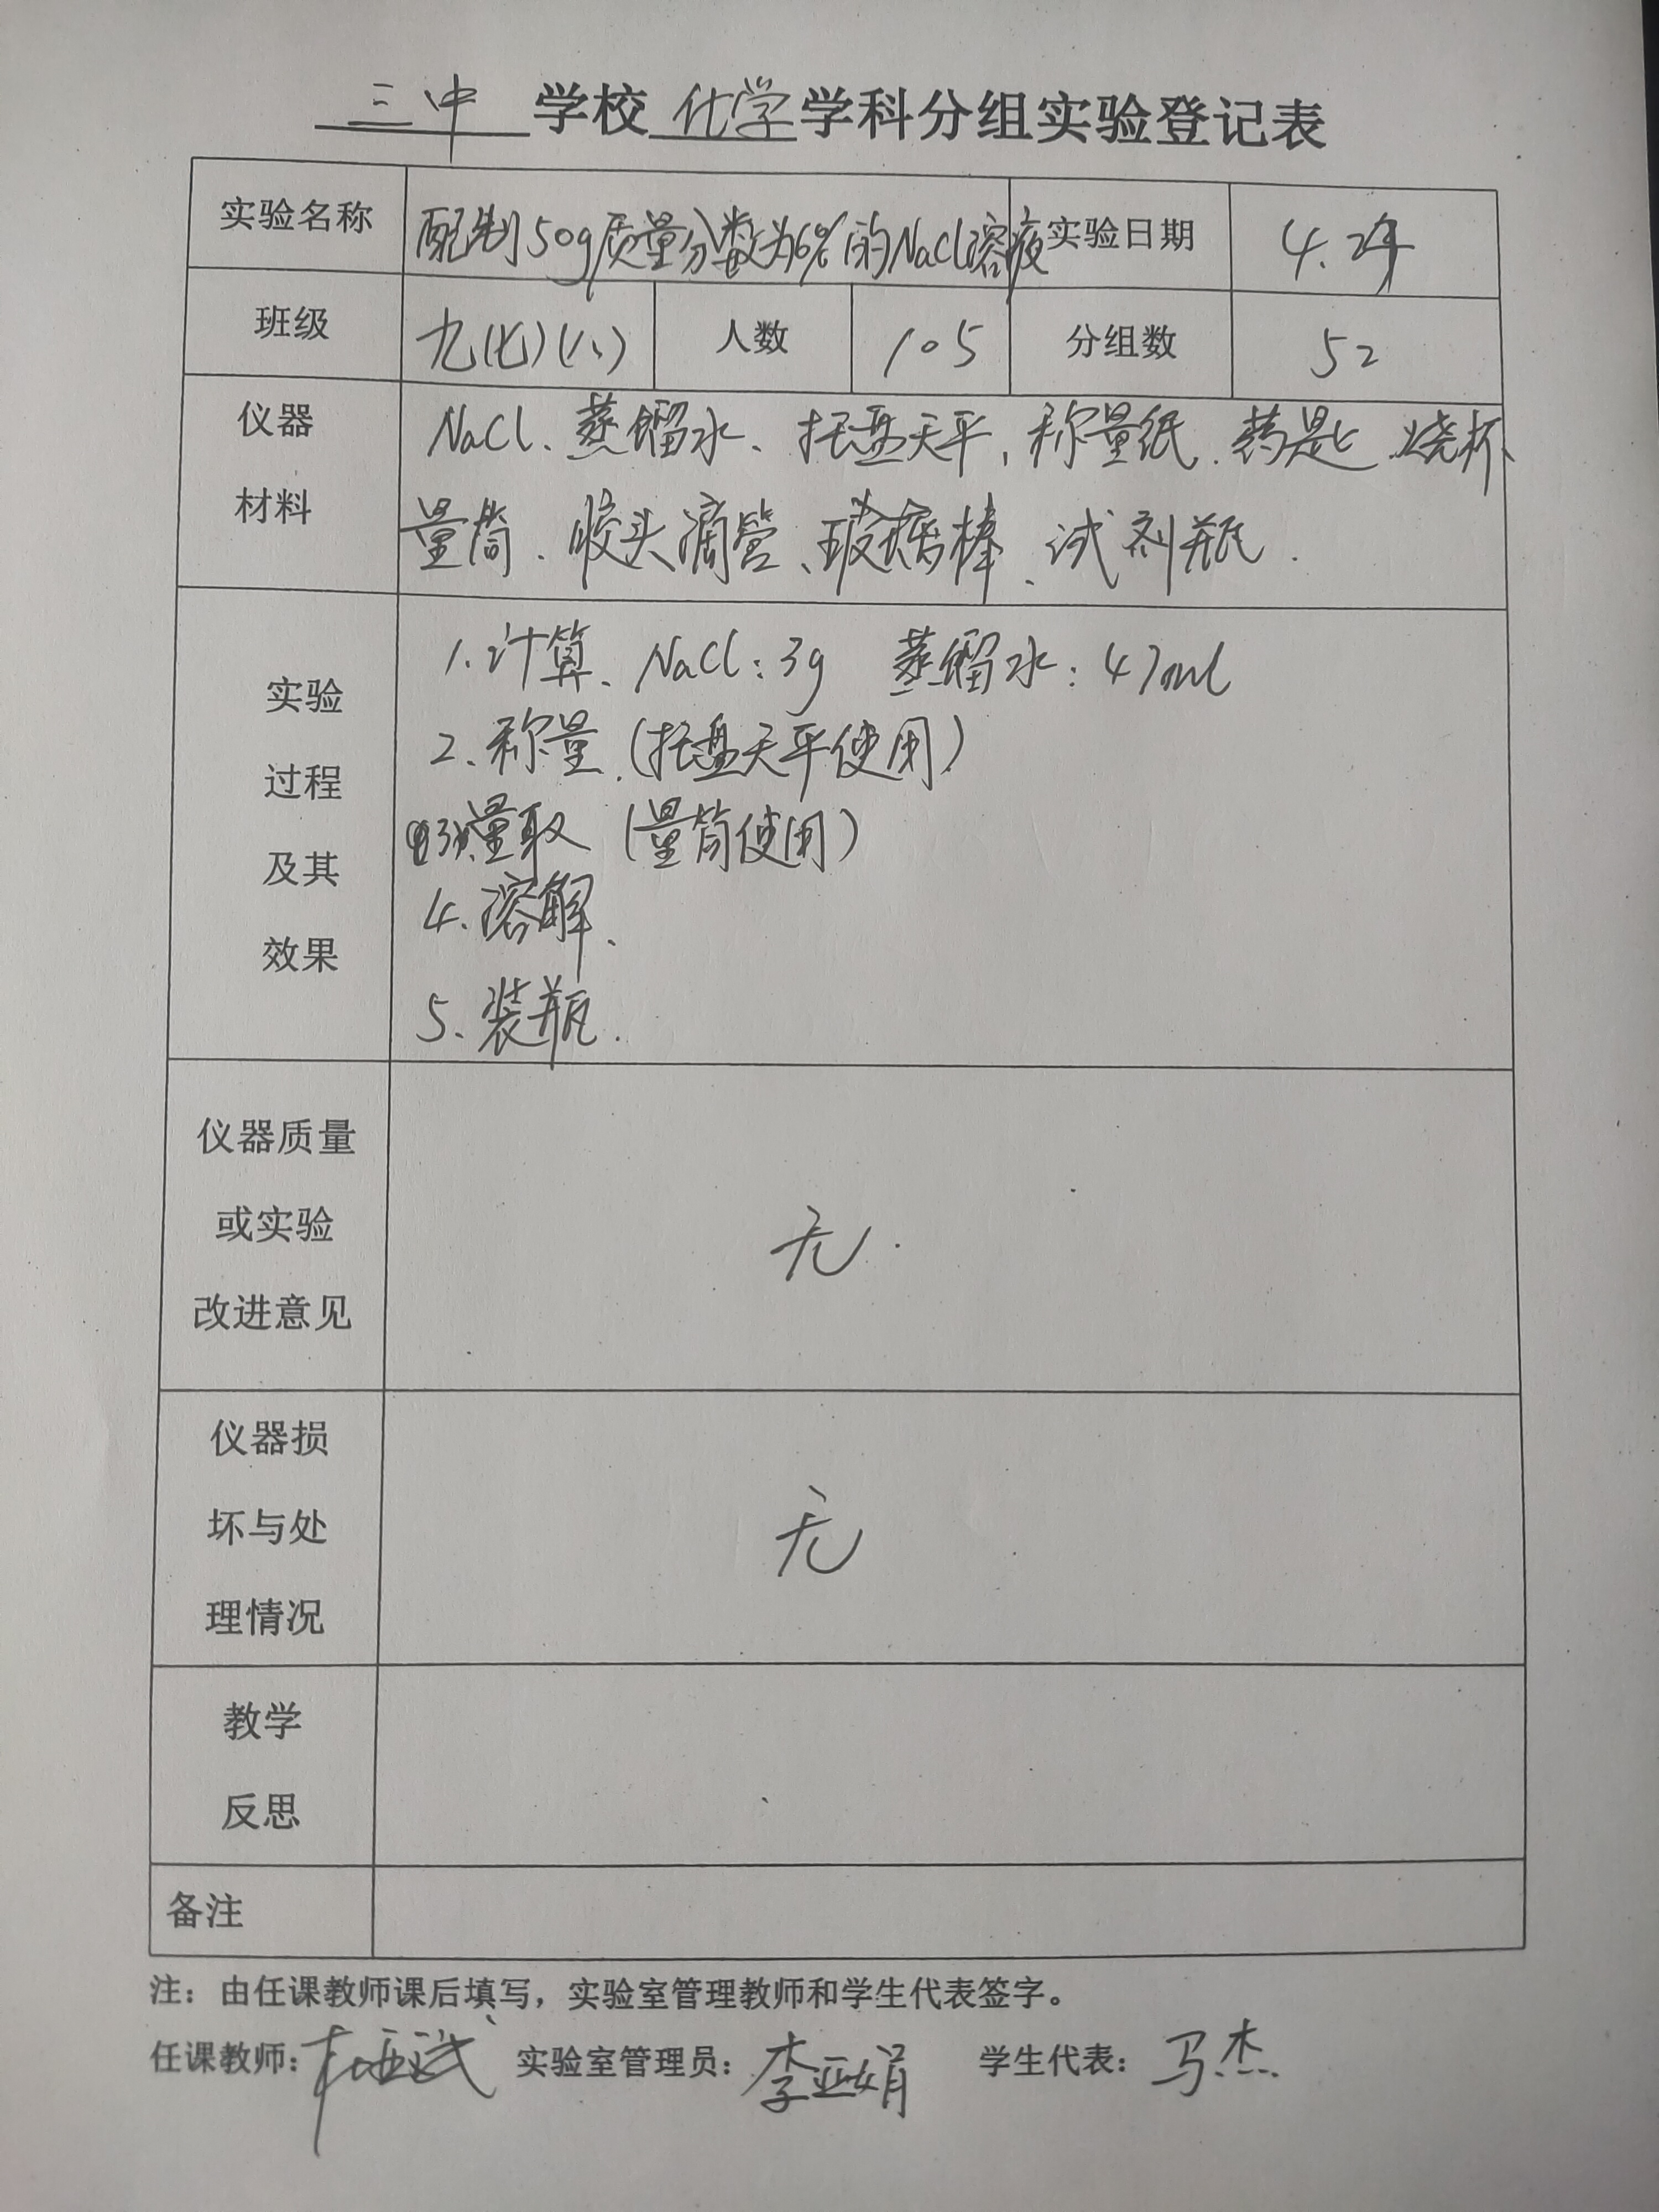 三中 学校 化学 学科分组实验登记表
实验名称 配制50g质量分数为6%的NaCl溶液 实验日期 4.24
班级 九(七)(八) 人数 105 分组数 52
仪器 NaCl、蒸馏水、托盘天平、称量纸、药匙、烧杯、
材料 量筒、胶头滴管、玻璃棒、试剂瓶.
1.计算、NaCl:3g 蒸馏水:47ml
实验
2、称量.(托盘天平使用)
过程
3、量取(量筒使用)
及其
4.溶解、
效果
5、装瓶.
仪器质量
或实验 无.
改进意见
仪器损
坏与处 无
理情况
教学
反思
备注
注：由任课教师课后填写，实验室管理教师和学生代表签字。
任课教师： 实验室管理员：李亚娟 学生代表：马杰